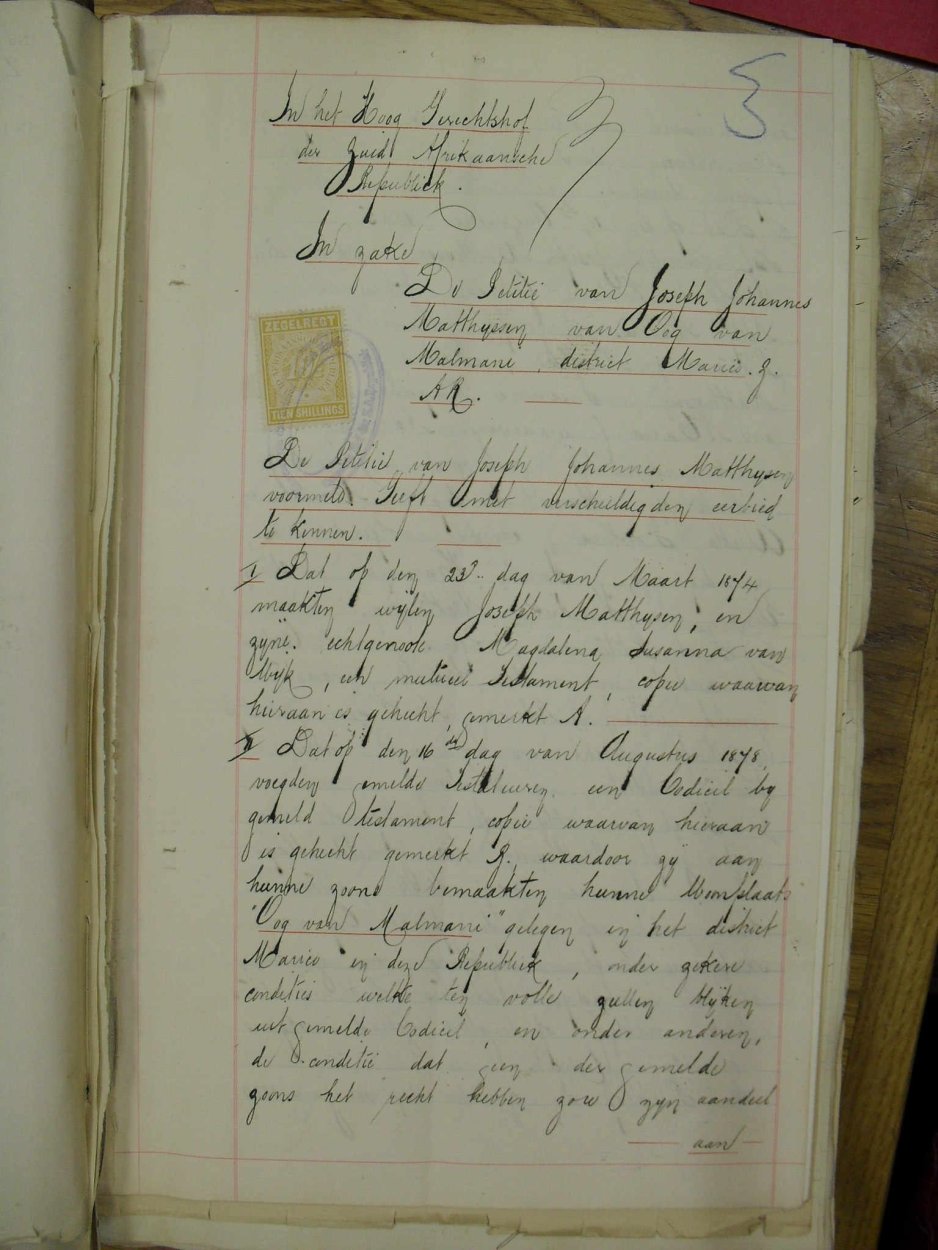 In het Hoog Gerechtshof
der Zuid Afrikaansche
Republiek.
In zake
De Petitie van Joseph Johannes
Matthysen van Oog van
Malmani, district Marico. Z.
AR.
ZEGELREGT
TIEN SHILLINGS
De Petitie van Joseph Johannes Matthysen
voormeld. Geeft met verschuldigden eerbied
te kennen.
I Dat op den 23e dag van Maart 1874
maakten wijlen Joseph Matthysen, en
zyne echtgenoote Magdalena Susanna van
Wijk, een mutueel Testament, copie waarvan
hieraan is gehecht, gemerkt A.
II Dat op den 16de dag van Augustus 1878,
voegden gemelde Testateuren een Codicil by
gemeld testament, copie waarvan hieraan
is gehecht gemerkt B., waardoor zy aan
hunne zoons bemaakten hunne Woonplaats
"Oog van Malmani" gelegen in het district
Marico in deze Republiek, onder zekere
condities welke ten volle zullen blijken
uit gemelde Codicil, en onder anderen,
de conditie dat geen der gemelde
zoons het recht hebben zou zijn aandeel
aan